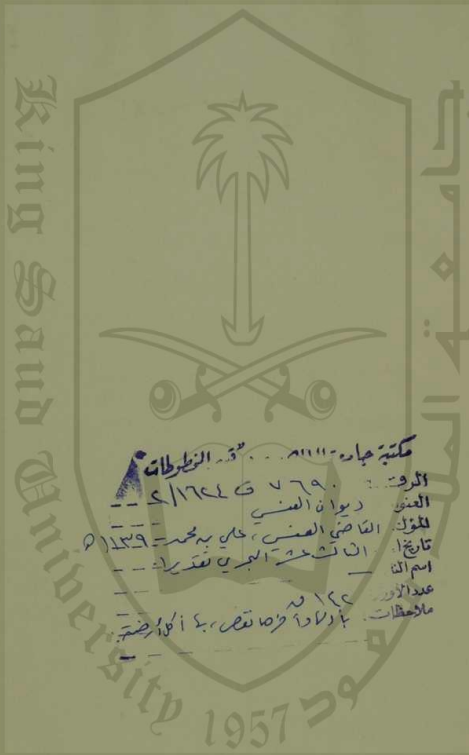 King Saud University
1957
مكتبة جامعة قسم المخطوطات
الرقم: ٧٦٩٠ ف ٢/١٦٢٤
العنوان ديوان العنسي
المؤلف القاضي العنسي، علي بن محمد - ١١٣٩هـ
تاريخ الثالث عشر الهجري تقديرا
اسم النا
عدد الأوراق ١٢٢ ق
ملاحظات: بأولها وآخرها نقص، بها أكل أرضة